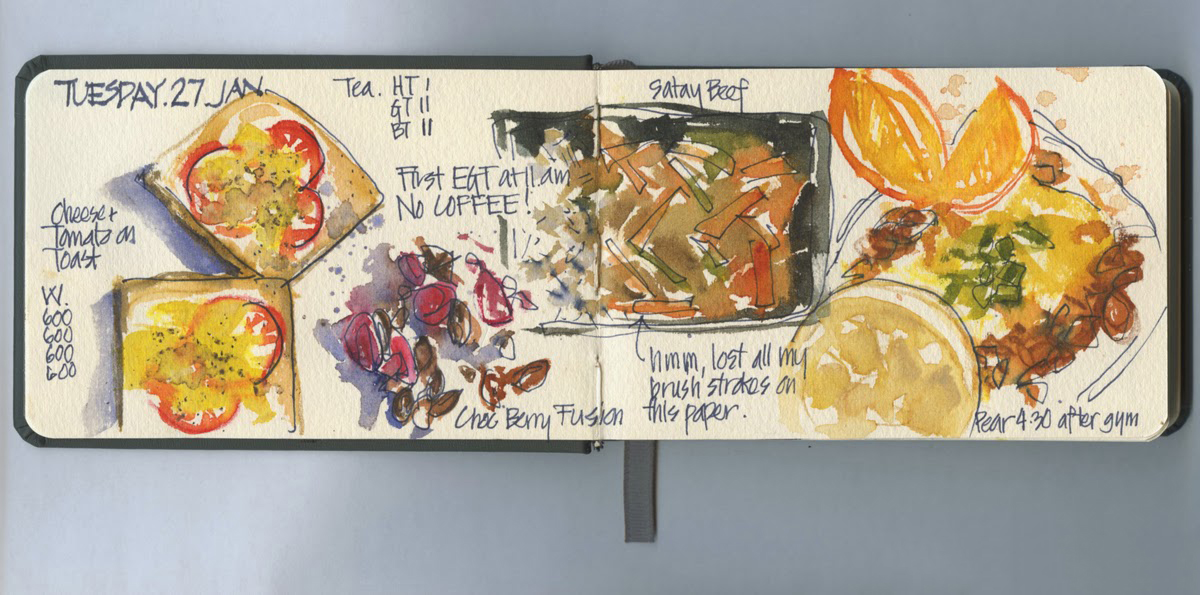 TUESDAY. 27 JAN.
Tea. HT I
GT II
BT II
First EGT at 11.am
NO COFFEE!
Cheese +
Tomato on
Toast
W.
600
600
600
600
Choc Berry Fusion
Satay Beef
hmm, lost all my
brush strokes on
this paper.
Pear 4:30 after gym